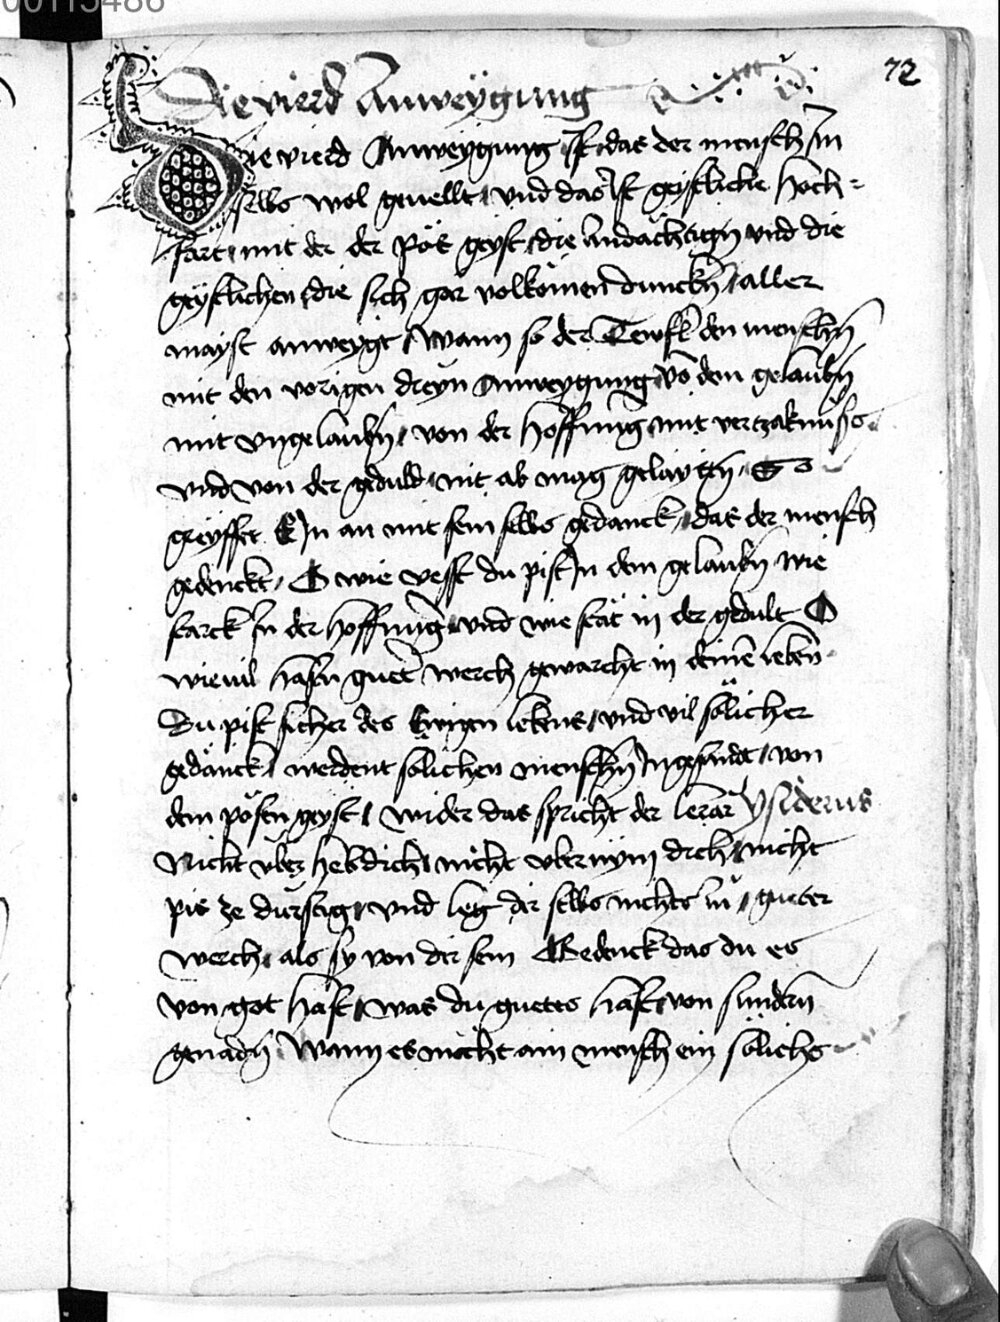 00115486
72
Die vierd Anweygung
Die vierd Anweygung Ist das der mensch Im
selbs wol geuellt / vnd das Ist geistliche hoch=
fart / mit der der pös geyst / die Andächtign vnd die
geystlichen / die sich gar volkömen dunckn̄ / aller
mayst anweygt / Wann so der Tewfl den menschn̄
mit den vorigen dreyn Anweygung / vō dem gelaubn̄
mit vngelaubn̄ / von der hoffnung mit vertzaknuss
vnd von der geduld / nit ab mag gelaytn̄ / So
greyffet Er In an mit sein selbs gedanck / das der mensch
gedenckt / O wie vesst du pist In dem gelaubn̄ wie
starck In der hoffnūg / vnd wie stät in der gedult O
wieuil hastu gueter werch gewarcht in deinē leben
Du pist sicher des Ewigen lebens / vnd vil sölicher
gedänck / werdent solichen menschn̄ Ingesendt / von
dem pösen geyst / Wider das spricht der lerar Ysiderus
Nicht vber heb dich / nicht vbernym dich / nicht
pis ze dürstig / vnd leg dir selbs nichts zu / gueter
werch / als sy von dir sein Bedenck das du es
von got hast / was du guetes hast / von sundern
genadn̄ Wann es möcht ain mensch ein sölichs